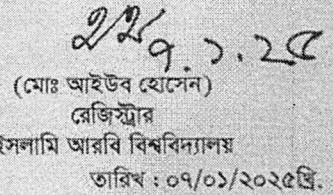 ৭.১.২৫
(মোঃ আইউব হোসেন)
রেজিস্ট্রার
ইসলামি আরবি বিশ্ববিদ্যালয়
তারিখ : ০৭/০১/২০২৫খ্রি.